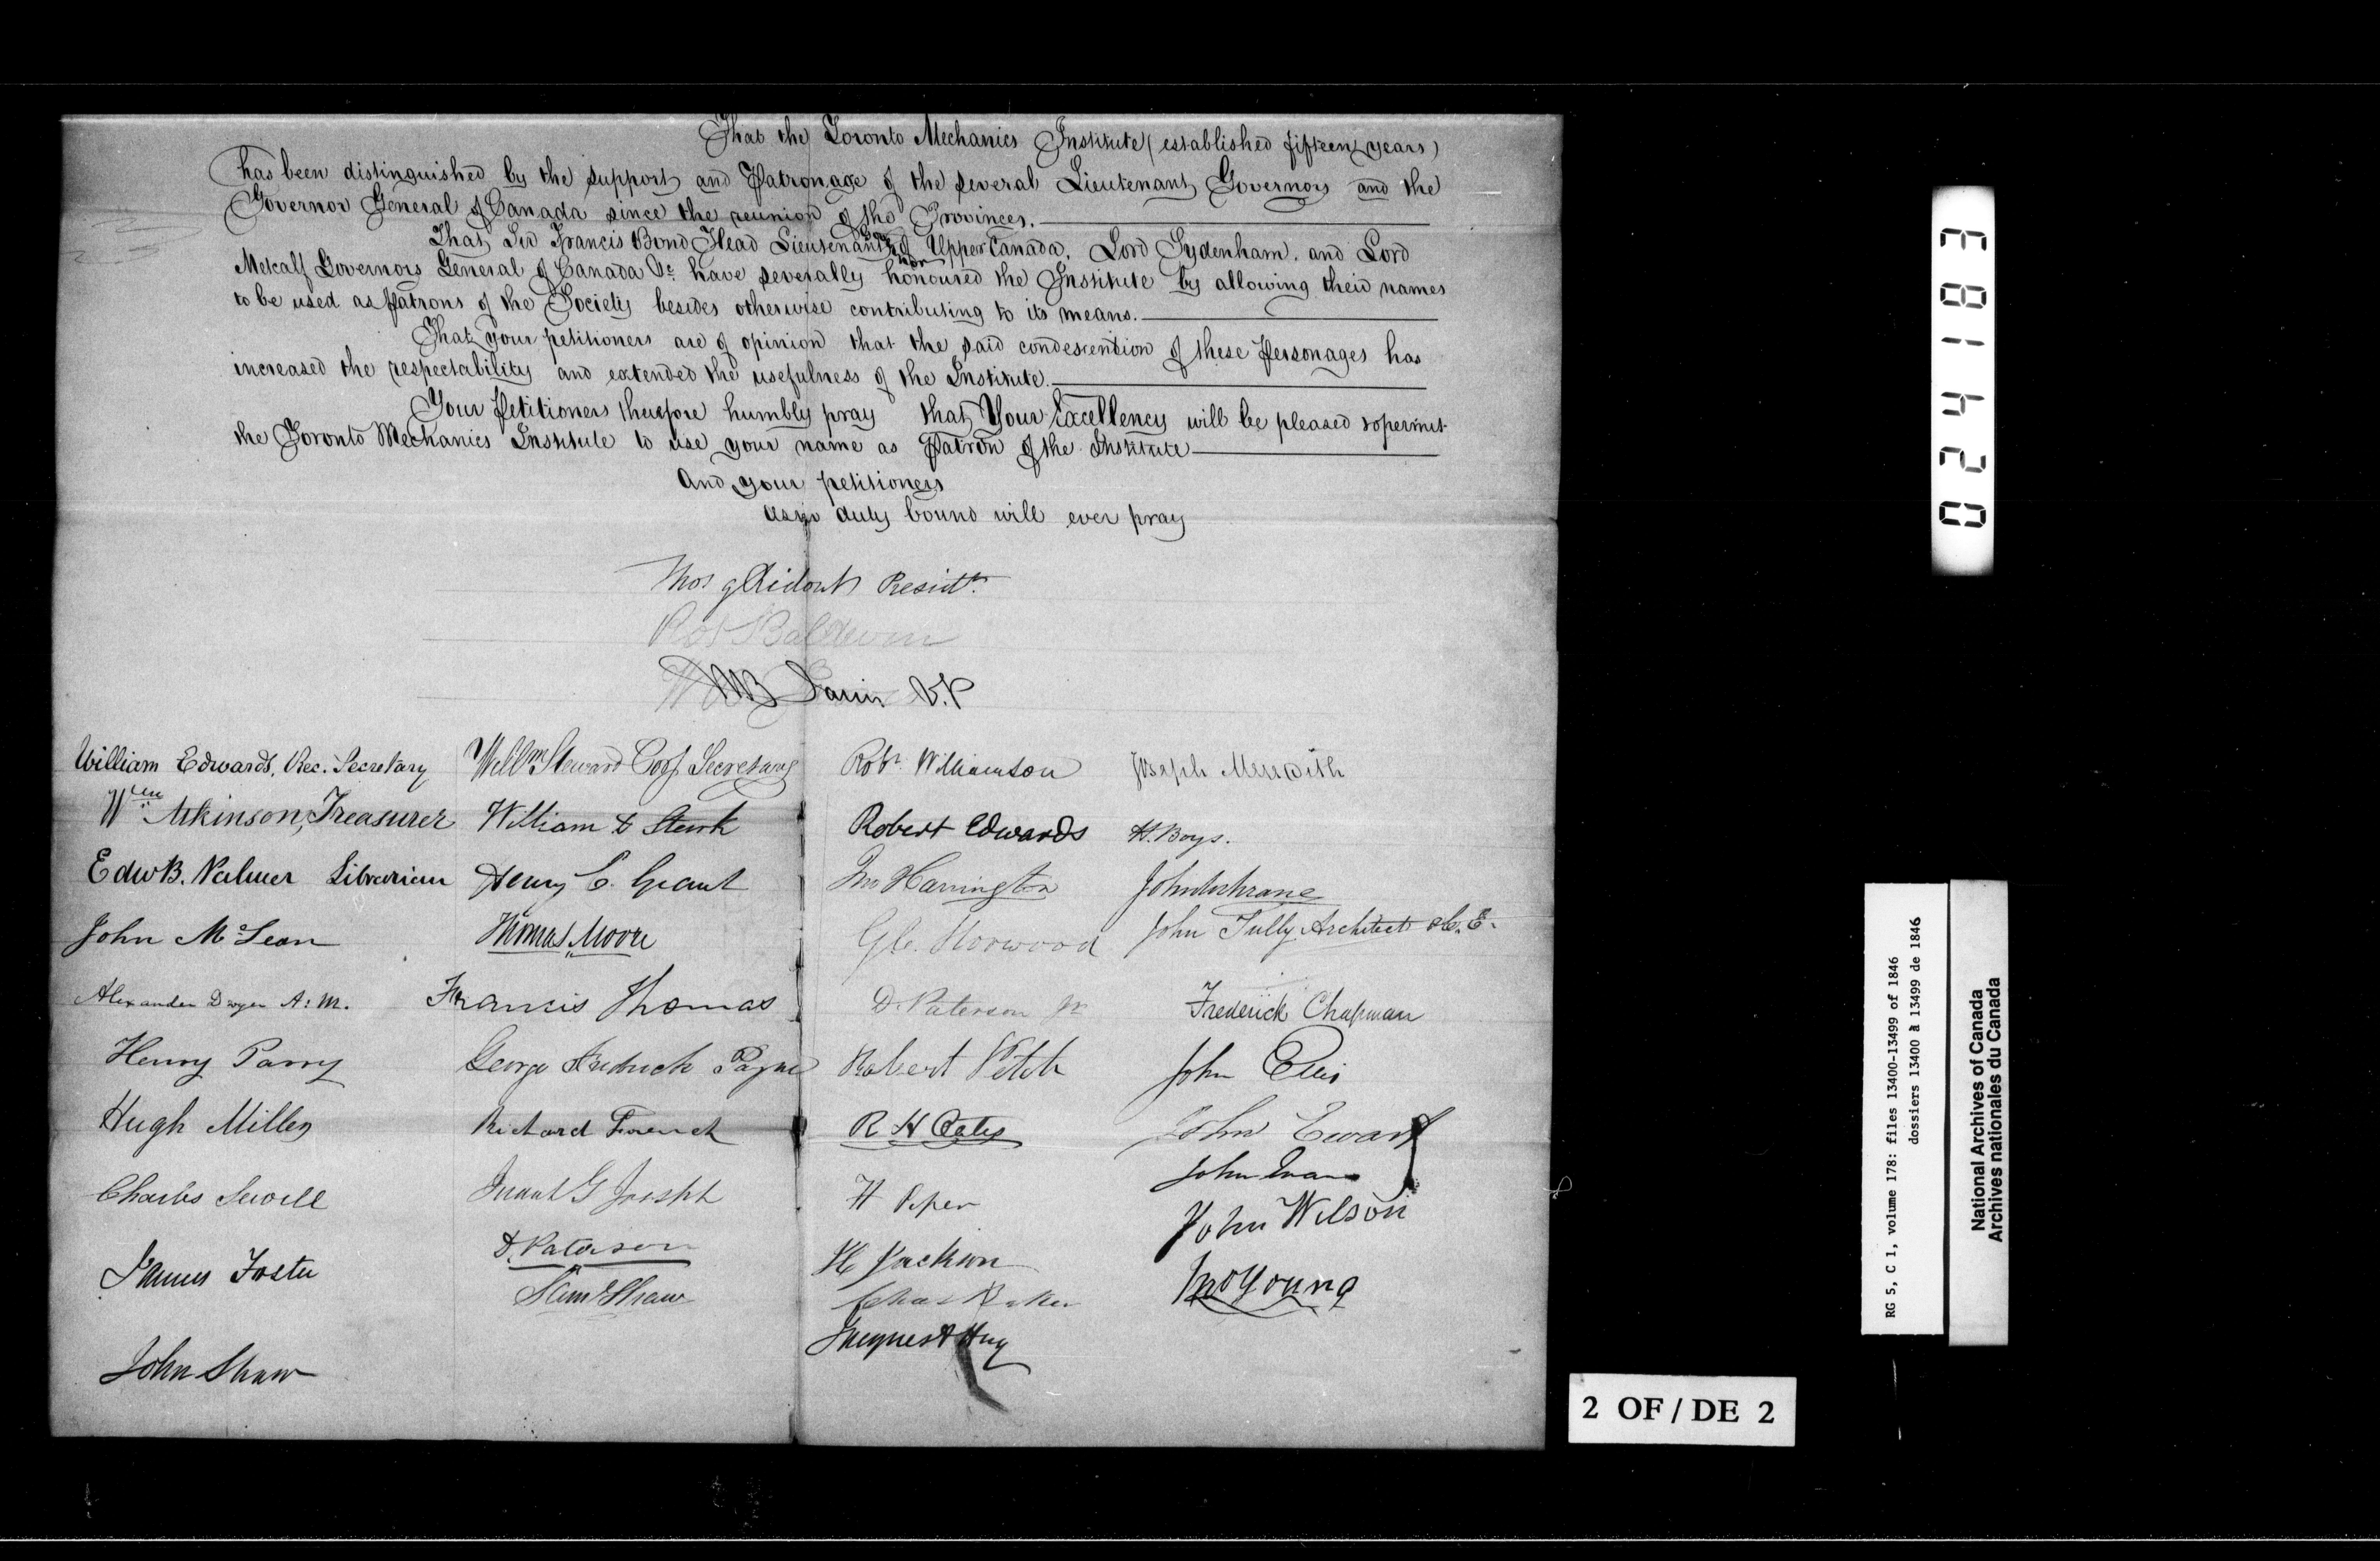 That the Toronto Mechanics Institute (established fifteen years)
has been distinguished by the support and Patronage of the several Lieutenant Governors and the
Governor General of Canada since the reunion of the Provinces.
That Sir Francis Bond Head Lieutenant Govr of Upper Canada, Lord Sydenham, and Lord
Metcalf Governors General of Canada &c have severally honoured the Institute by allowing their names
to be used as Patrons of the Society besides otherwise contributing to its means.
That your petitioners are of opinion that the said condescention of these Personages has
increased the respectability and extended the usefulness of the Institute.
Your Petitioners therefore humbly pray that Your Excellency will be pleased to permit
the Toronto Mechanics Institute to use your name as Patron of the Institute
And your petitioners
as in duty bound will ever pray
Thos g Ridout Presidt.
Robt Baldwin
WB Jarvis V.P
William Edwards, Rec. Secretary
Willm Steward Cor. Secretary
Robt Williamson
Joseph Meredith
Wm Atkinson, Treasurer
William Stark
Robert Edwards
H. Boys.
Edw B. Palmer Librarian
Henry E. Grant
Jno Harrington
John Cochrane
John McLean
Thomas Moore
Horwood
John Tully Architect & C.E.
Alexander Dwyer A: M.
Francis Thomas
D. Paterson Jr
Frederick Chapman
Henry Parry
George Fredrick Payne
Robert Petch
John Ellis
Hugh Miller
Richard French
R H Oates
John Ewart
Charles Sewell
G Joseph
H Piper
John Evans
James Foster
D. Paterson
H Jackson
John Wilson
Saml Shaw
Chas Baker
Jno Young
Jacques & Hay
John Shaw
024183
RG 5, C 1, volume 178: files 13400-13499 of 1846
dossiers 13400 à 13499 de 1846
National Archives of Canada
Archives nationales du Canada
2 OF / DE 2